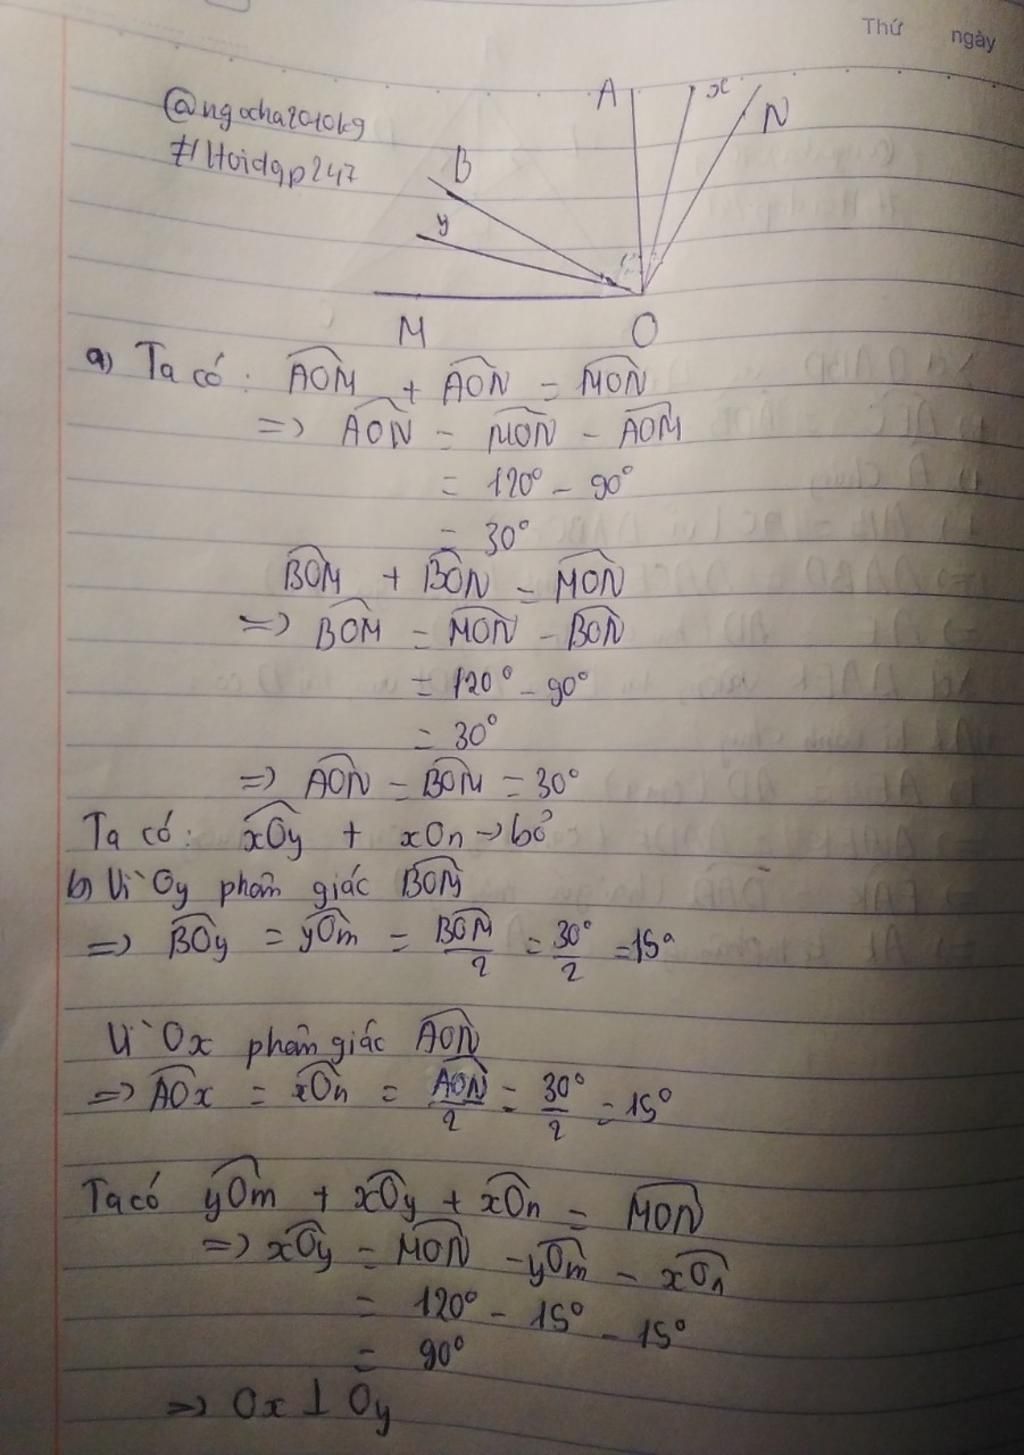 Thứ ngày
@ngocha2010kg
#Hoidap247
A x N
B
y
M O
a) Ta có: AOM + AON = MON
=> AON = MON - AOM
= 120° - 90°
= 30°
BOM + BON = MON
=> BOM = MON - BON
= 120° - 90°
= 30°
=> AON = BOM = 30°
Ta có: xOy + xOn -> bỏ
b) Vì Oy phân giác BOM
=> BOy = yOm = BOM/2 = 30°/2 = 15°
Vì Ox phân giác AON
=> AOx = xOn = AON/2 = 30°/2 = 15°
Ta có yOm + xOy + xOn = MON
=> xOy = MON - yOm - xOn
= 120° - 15° - 15°
= 90°
=> Ox ⊥ Oy